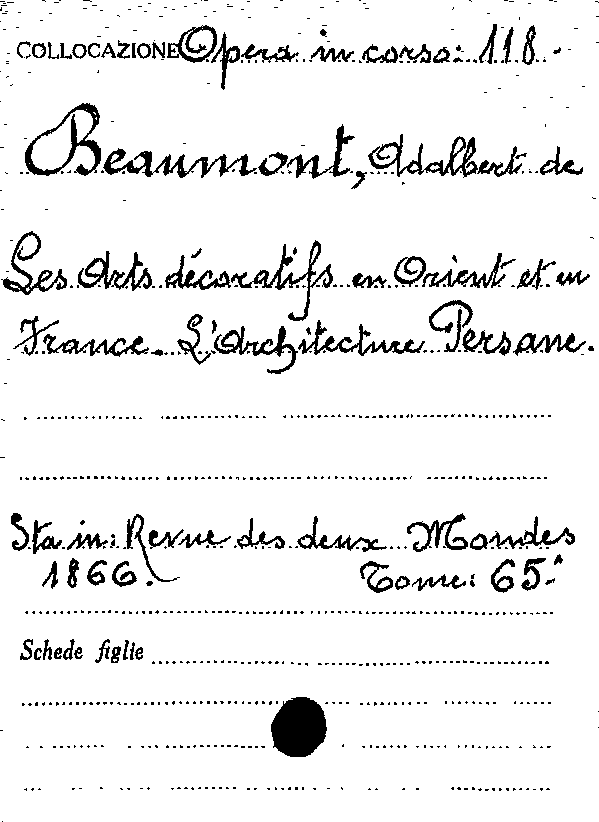 COLLOCAZIONE Opera in corso: 118.
Beaumont, Adalbert de
Les Arts décoratifs en Orient et en
France. L'Architecture Persane.
Sta in: Revue des deux Mondes
1866. Tome: 65.^
Schede figlie